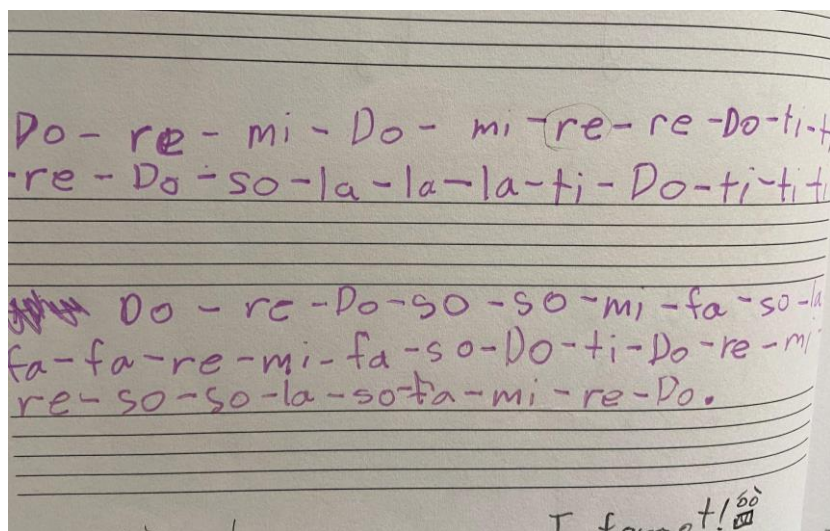 Do - re - mi - Do - mi - re - re - Do - ti - t
-re - Do - so - la - la - la - ti - Do - ti - ti - ti
Do - re - Do - so - so - mi - fa - so - la
fa - fa - re - mi - fa - so - Do - ti - Do - re - mi
re - so - so - la - so - fa - mi - re - Do.
I forgot!